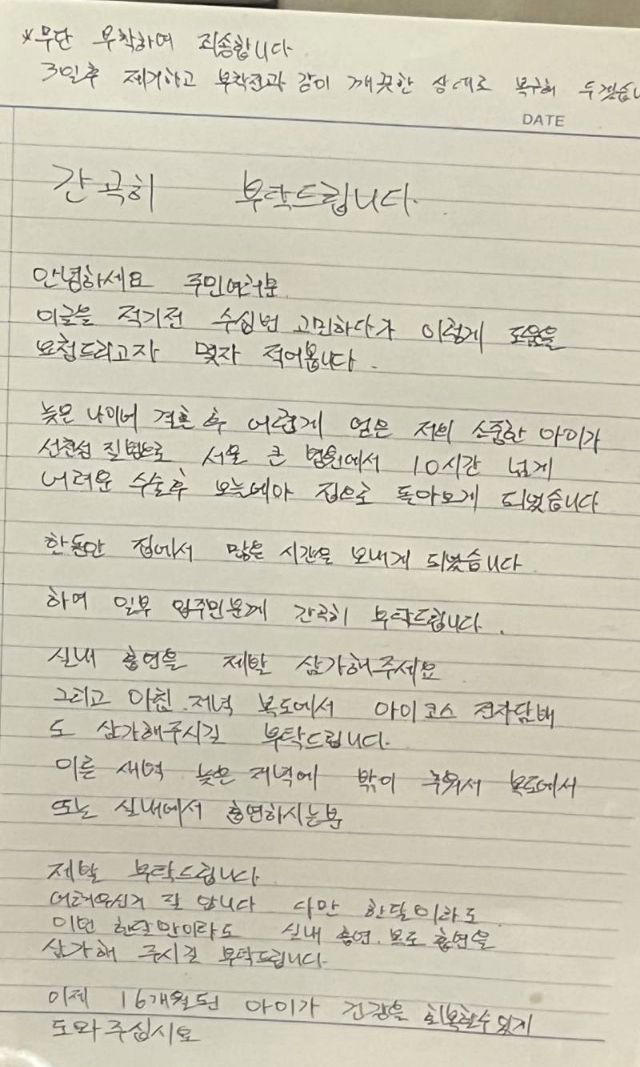 *무단 부착하여 죄송합니다
3일후 제거하고 부착전과 같이 깨끗한 상태로 복구해 두겠습니
DATE
간곡히 부탁드립니다.
안녕하세요 주민여러분
이글을 적기전 수십번 고민하다가 이렇게 도움을
요청드리고자 몇자 적어봅니다.
늦은 나이에 결혼 후 어렵게 얻은 저의 소중한 아이가
선천성 질병으로 서울 큰 병원에서 10시간 넘게
어려운 수술후 오늘에야 집으로 돌아오게 되었습니다
한동안 집에서 많은 시간을 보내게 되었습니다
하여 일부 입주민분께 간곡히 부탁드립니다.
실내 흡연을 제발 삼가해주세요
그리고 아침.저녁 복도에서 아이코스 전자담배
도 삼가해주시길 부탁드립니다.
이른 새벽 늦은 저녁에 밖이 추워서 복도에서
또는 실내에서 흡연하시는분
제발 부탁드립니다
어려우신거 잘 압니다 다만 한달이라도
이번 한달만이라도 실내 흡연.복도 흡연을
삼가해 주시길 부탁드립니다.
이제 16개월된 아이가 건강을 회복할수있게
도와주십시요